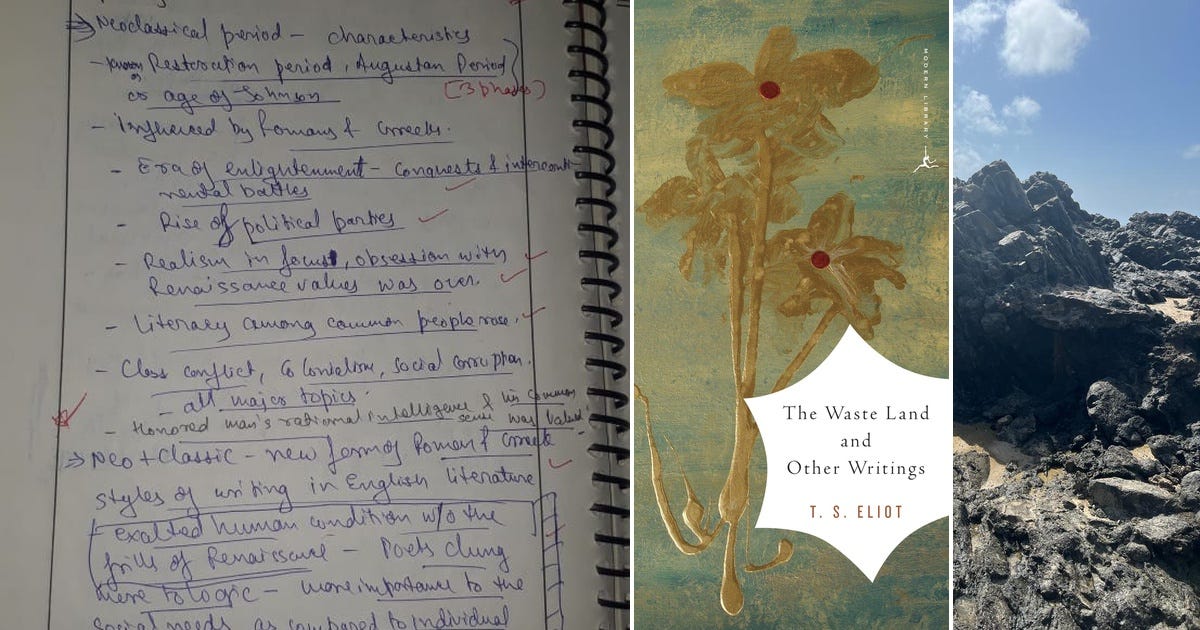 ⇒ Neoclassical period – characteristics
– Restoration period, Augustan Period
or age of Johnson
[3 phases]
– Influenced by Romans & Greeks.
– Era of enlightenment – Conquests & interconti-
nental battles
– Rise of political parties
– Realism in focus, obsession with
Renaissance values was over.
– Literacy among common people rose.
– Class conflict, Colonialism, social corruption.
– all major topics.
– Honored man's rational intelligence & his common
sense was valued
⇒ Neo + Classic – new form of Roman & Greek
styles of writing in English literature
exalted human condition w/o the
frills of Renaissance – Poets clung
more to logic – more importance to the
social needs as compared to individual
MODERN LIBRARY
The Waste Land
and
Other Writings
T. S. ELIOT